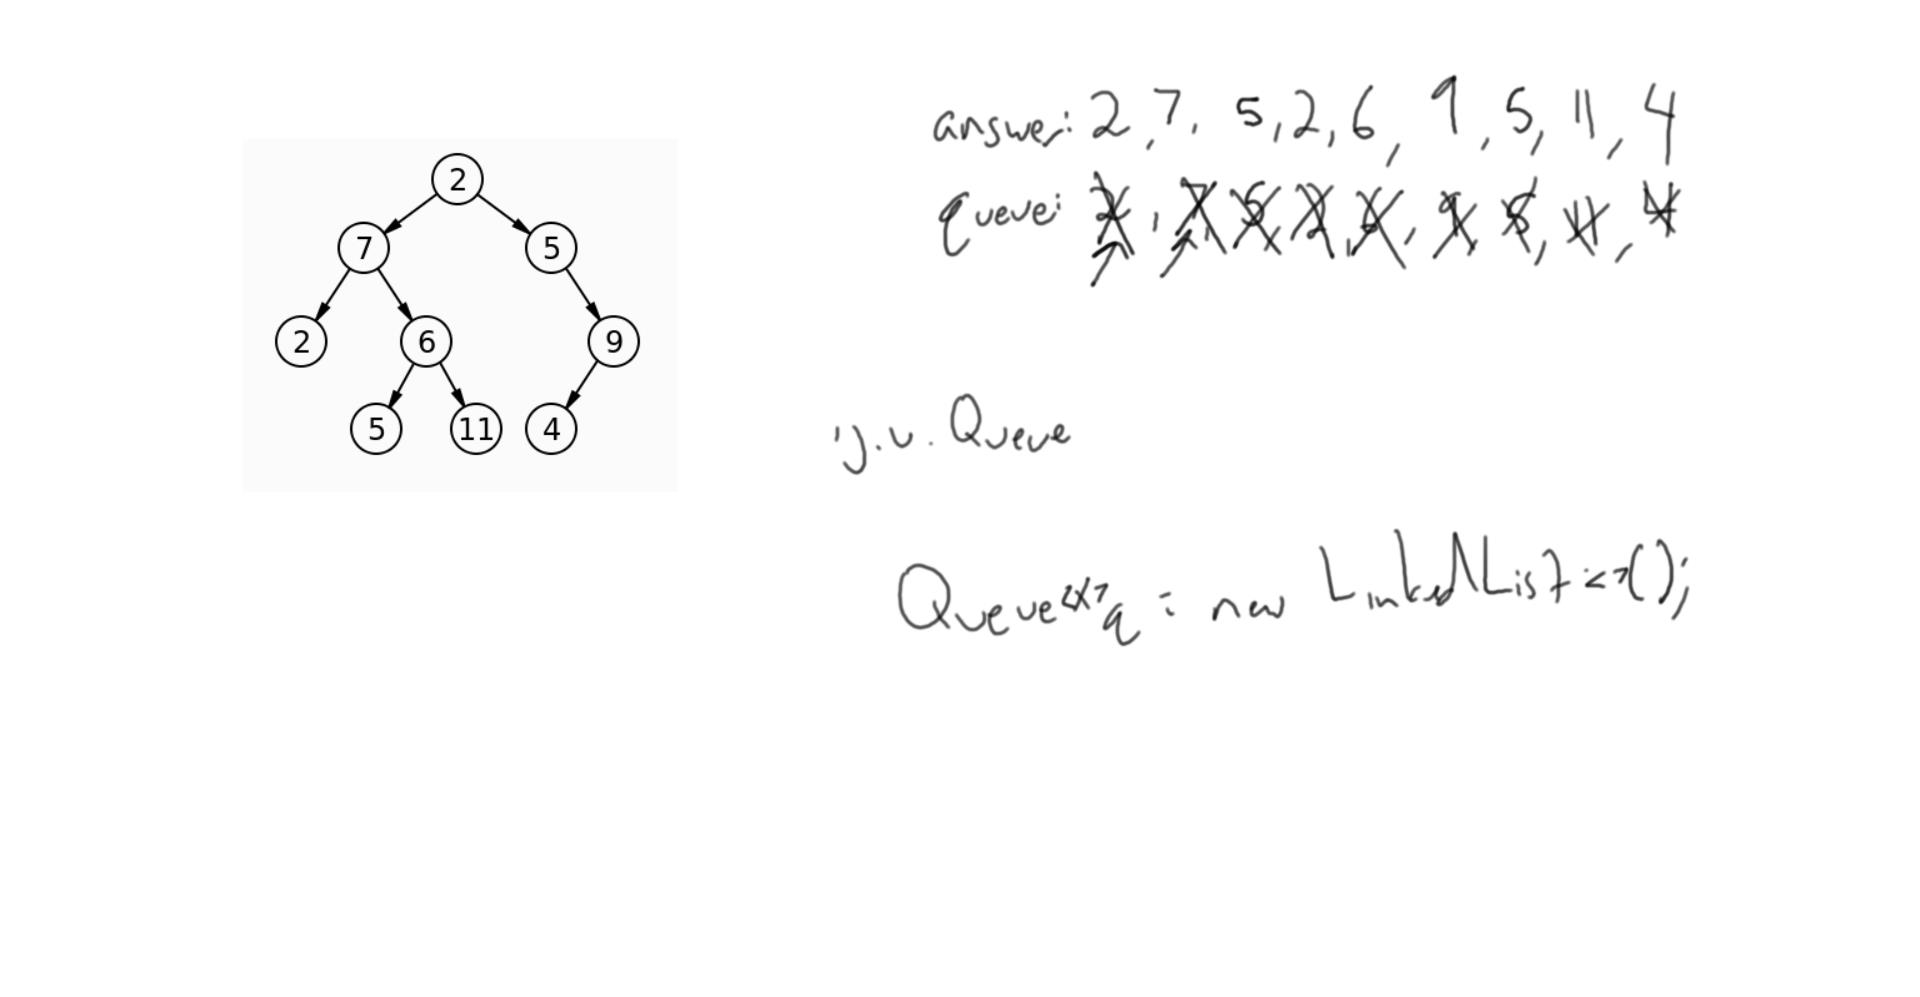 2
7 5
2 6 9
5 11 4
answer: 2, 7, 5, 2, 6, 9, 5, 11, 4
queue: 2, 7, 5, 2, 6, 9, 5, 11, 4
j.u.Queue
Queue<X> q = new LinkedList<>();